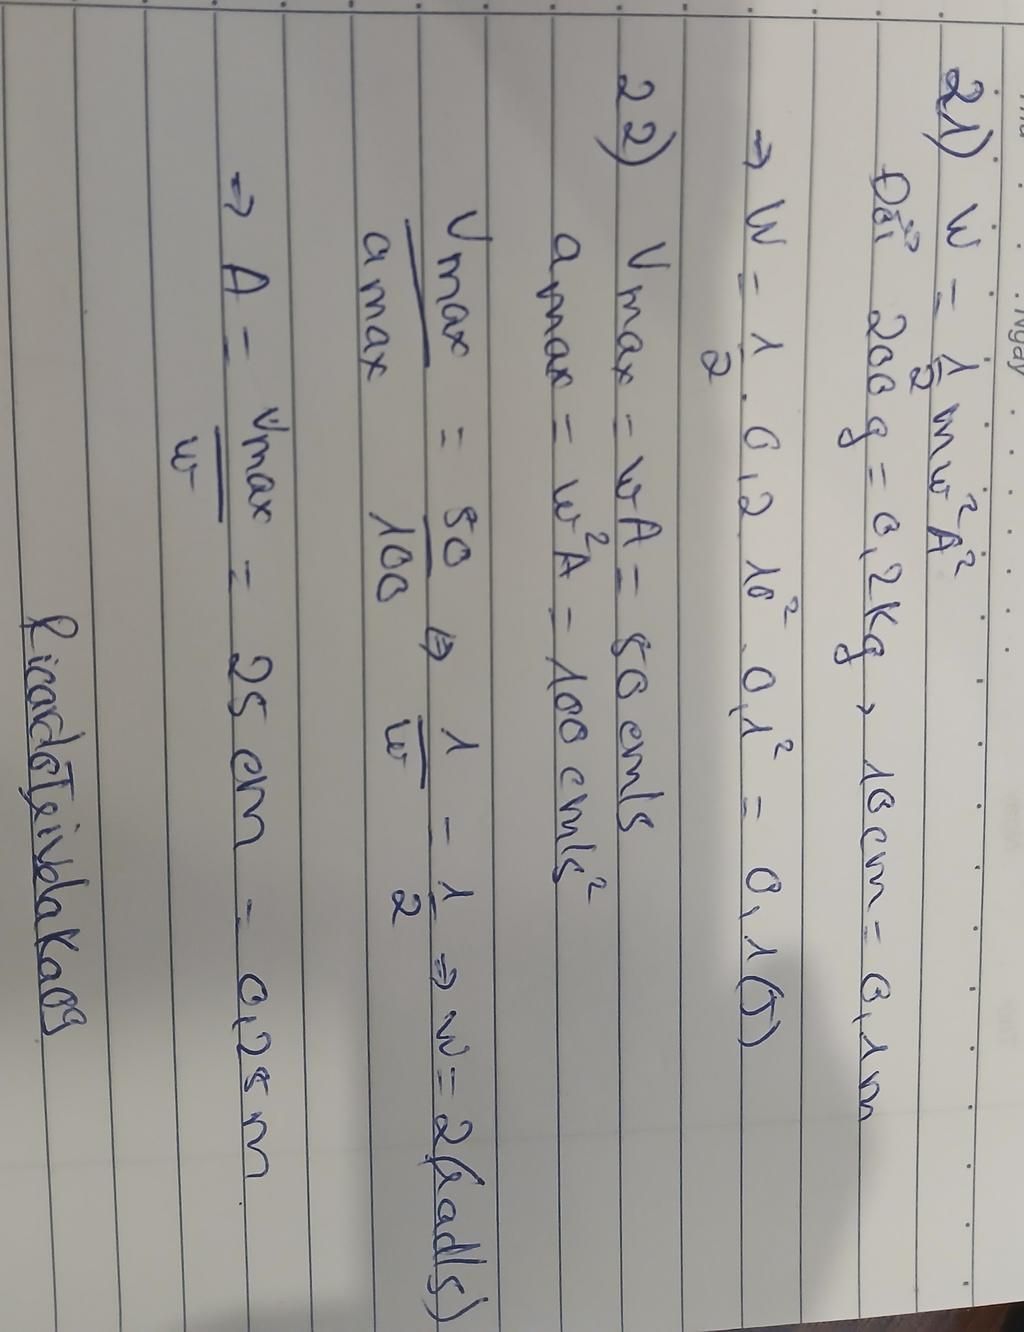 Ngày
21) W = 1/2 mw²A²
Đổi 200g = 0,2Kg, 10cm = 0,1m
⇒ W = 1/2 . 0,2 10² . 0,1² = 0,1(J)
22) Vmax = wA = 50cm/s
amax = w²A = 100cm/s²
Vmax/amax = 50/100 ⇔ 1/w = 1/2 ⇒ w = 2(rad/s)
⇒ A = vmax/w = 25cm = 0,25m